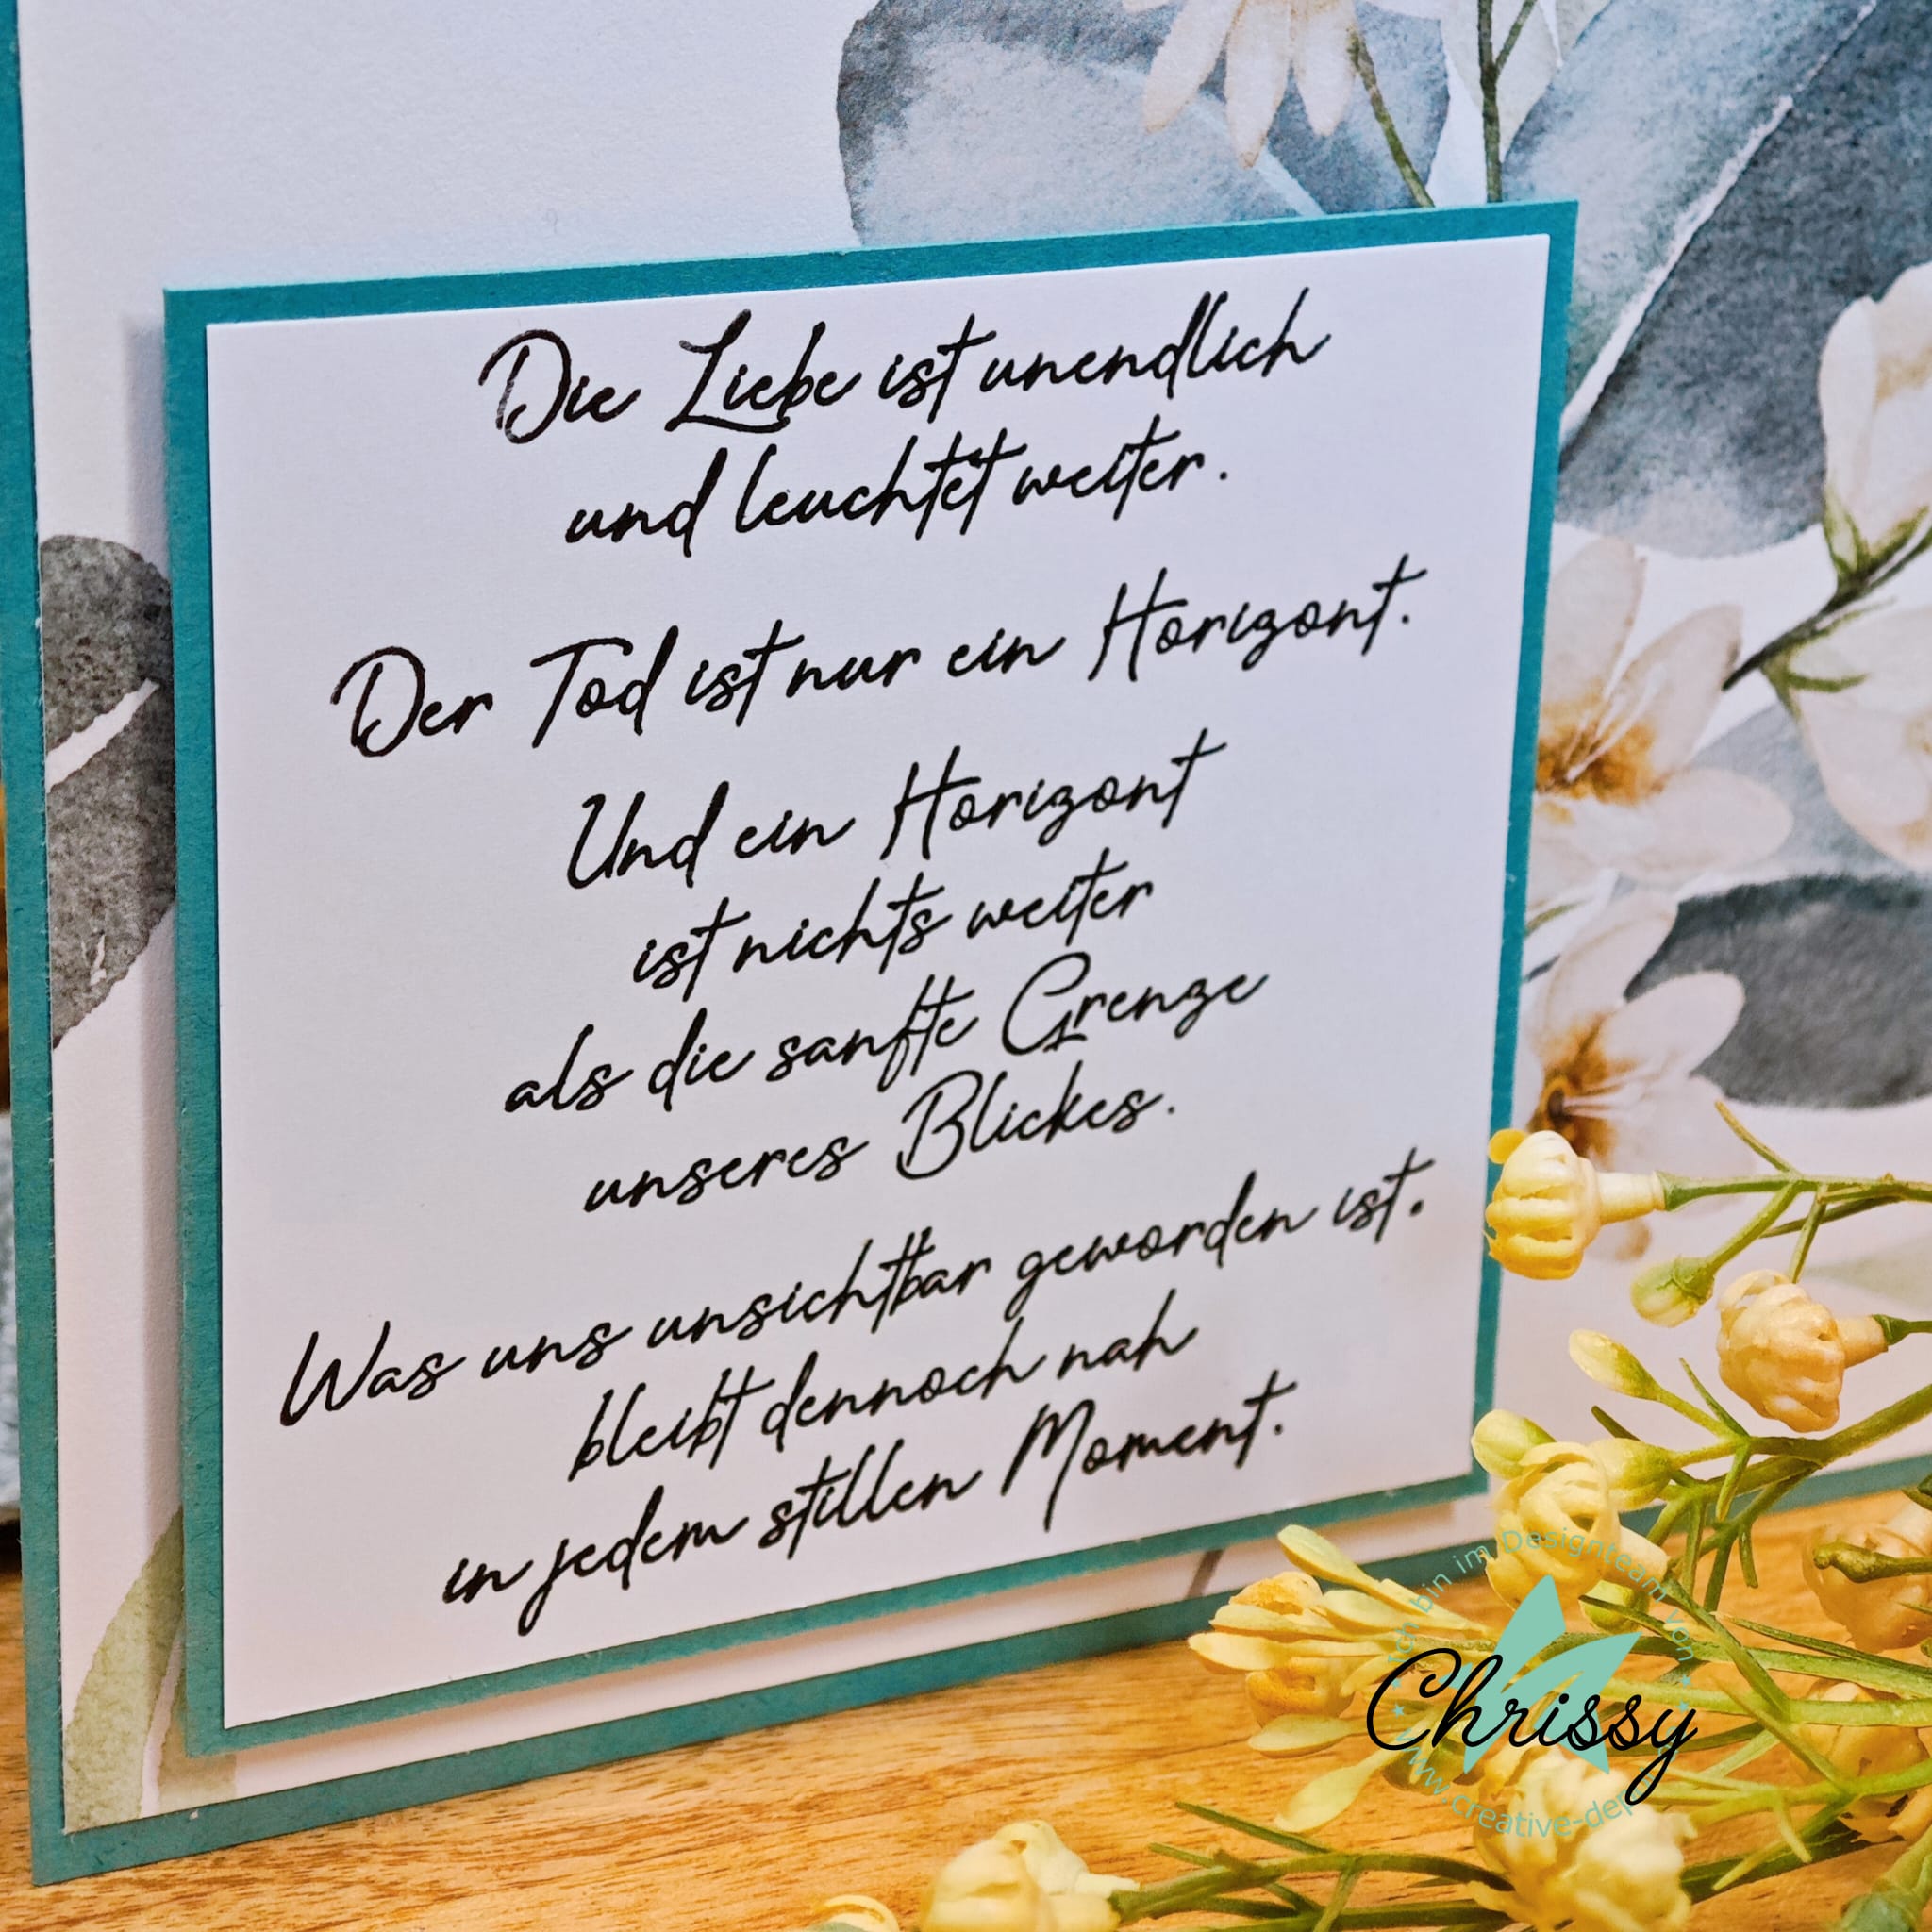 Die Liebe ist unendlich
und leuchtet weiter.
Der Tod ist nur ein Horizont.
Und ein Horizont
ist nichts weiter
als die sanfte Grenze
unseres Blickes.
Was uns unsichtbar geworden ist.
bleibt dennoch nah
in jedem stillen Moment.
Ich bin im Designteam von
Chrissy
www.creative-dep